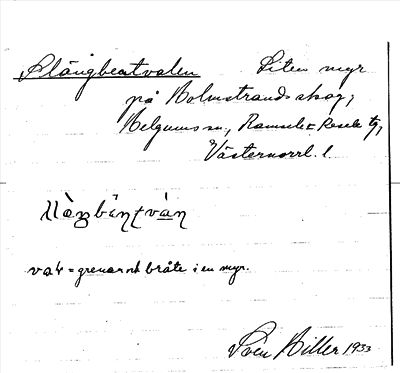 Slängbentvalen Liten myr
på Holmstrands skog,
Helgums sn, Ramsele o Resele tg,
Västernorrl. l.
val = grenar o bråte i en myr.
Sven Hiller 1933